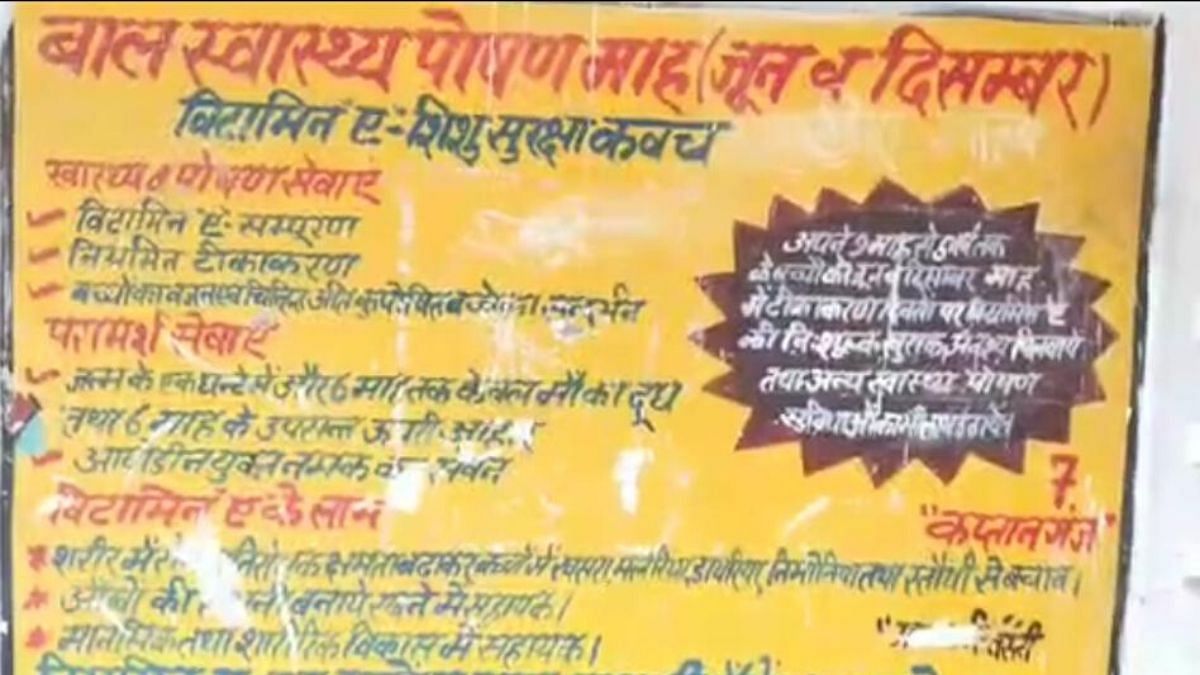 बाल स्वास्थ्य पोषण माह (जून व दिसम्बर)
विटामिन ए:- शिशु सुरक्षा कवच
स्वास्थ्य व पोषण सेवाएं
विटामिन ए- सम्पूरण
नियमित टीकाकरण
बच्चों का वजन एवं चिन्हित अति कुपोषित बच्चों का सन्दर्भन
परामर्श सेवाएं
जन्म के एक घन्टे में और 6 माह तक केवल माँ का दूध
तथा 6 माह के उपरान्त ऊपरी आहार
आयोडीन युक्त नमक का सेवन
विटामिन ए के लाभ
शरीर में क्षमता बढाकर बच्चे में खसरा, मलेरिया, डायरिया, निमोनिया तथा रतौंधी से बचाव।
आँखो की बनाये रखने में सहायक।
मानसिक तथा शारीरिक विकास में सहायक।
अपने 9 माह से 5 वर्ष तक
के बच्चों को जून व दिसम्बर माह
में टीकाकरण दिवसों पर विटामिन ए
की निःशुल्क खुराक अवश्य पिलवाये
तथा अन्य स्वास्थ्य पोषण
सुविधाओं का भी लाभ उठायें।
7
"कप्तानगंज"
बस्ती